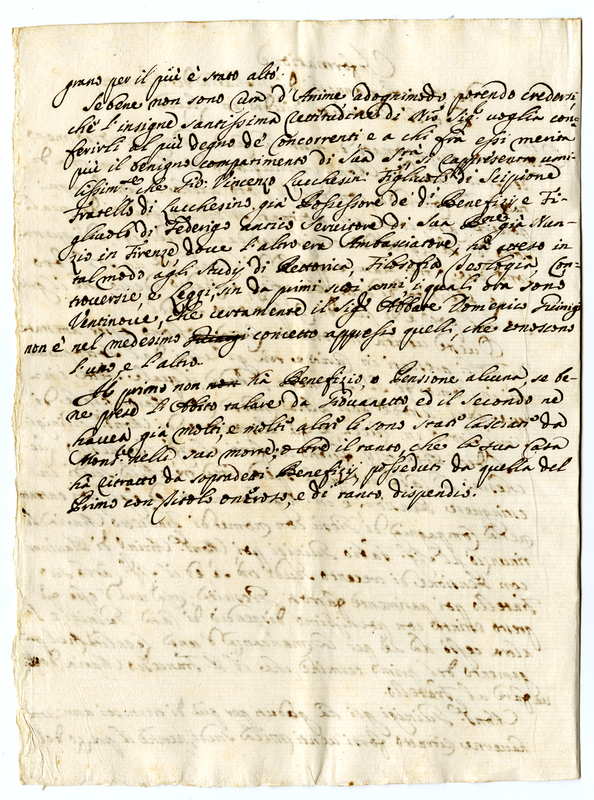 grano per il più è stato alto.
Se bene non sono Um d'Anime adognimodo, potendo credersi,
che l'insigne santissima rettitudine di N'ro Sig.re voglia con=
ferirli al più degno de' concorrenti e a chi frà essi merita
più il benigno compatimento di Sua S.tà, Si rappresenta umi-
lissim.te che Gio: Vincenzo Lucchesini figliuolo di Scipione
Fratello di Lucchesino già Possessore de' d.i Benefizj, e Fi-
gliuolo di Federigo antico servitore di Sua B.ne già Nun-
zio in Firenze, dove l'altro era Ambasciatore, hà atteso in
tal modo agli studij di Rettorica, Filosofia, Teologia, Con-
troversie, e Leggi, sin da primi suoi anni, i quali ora sono
Ventinove, che certamente il Sig.r Abbate Domenico Guinigi
non è nel medesimo concetto appresso quelli, che conoscono
l'uno, e l'altro.
Il primo non non hà Benefizio, o Pensione alcuna, se be-
ne prese l'Abito talare da Giovanetto, ed il secondo ne
haveva già molti, e molti altri li sono stati lasciati da
Mons.re nella sua morte; oltre il tanto, che la sua Casa
hà ritratto da sopradetti Benefizj posseduti da quella del
Primo con titolo oneroso, e di tanto dispendio.